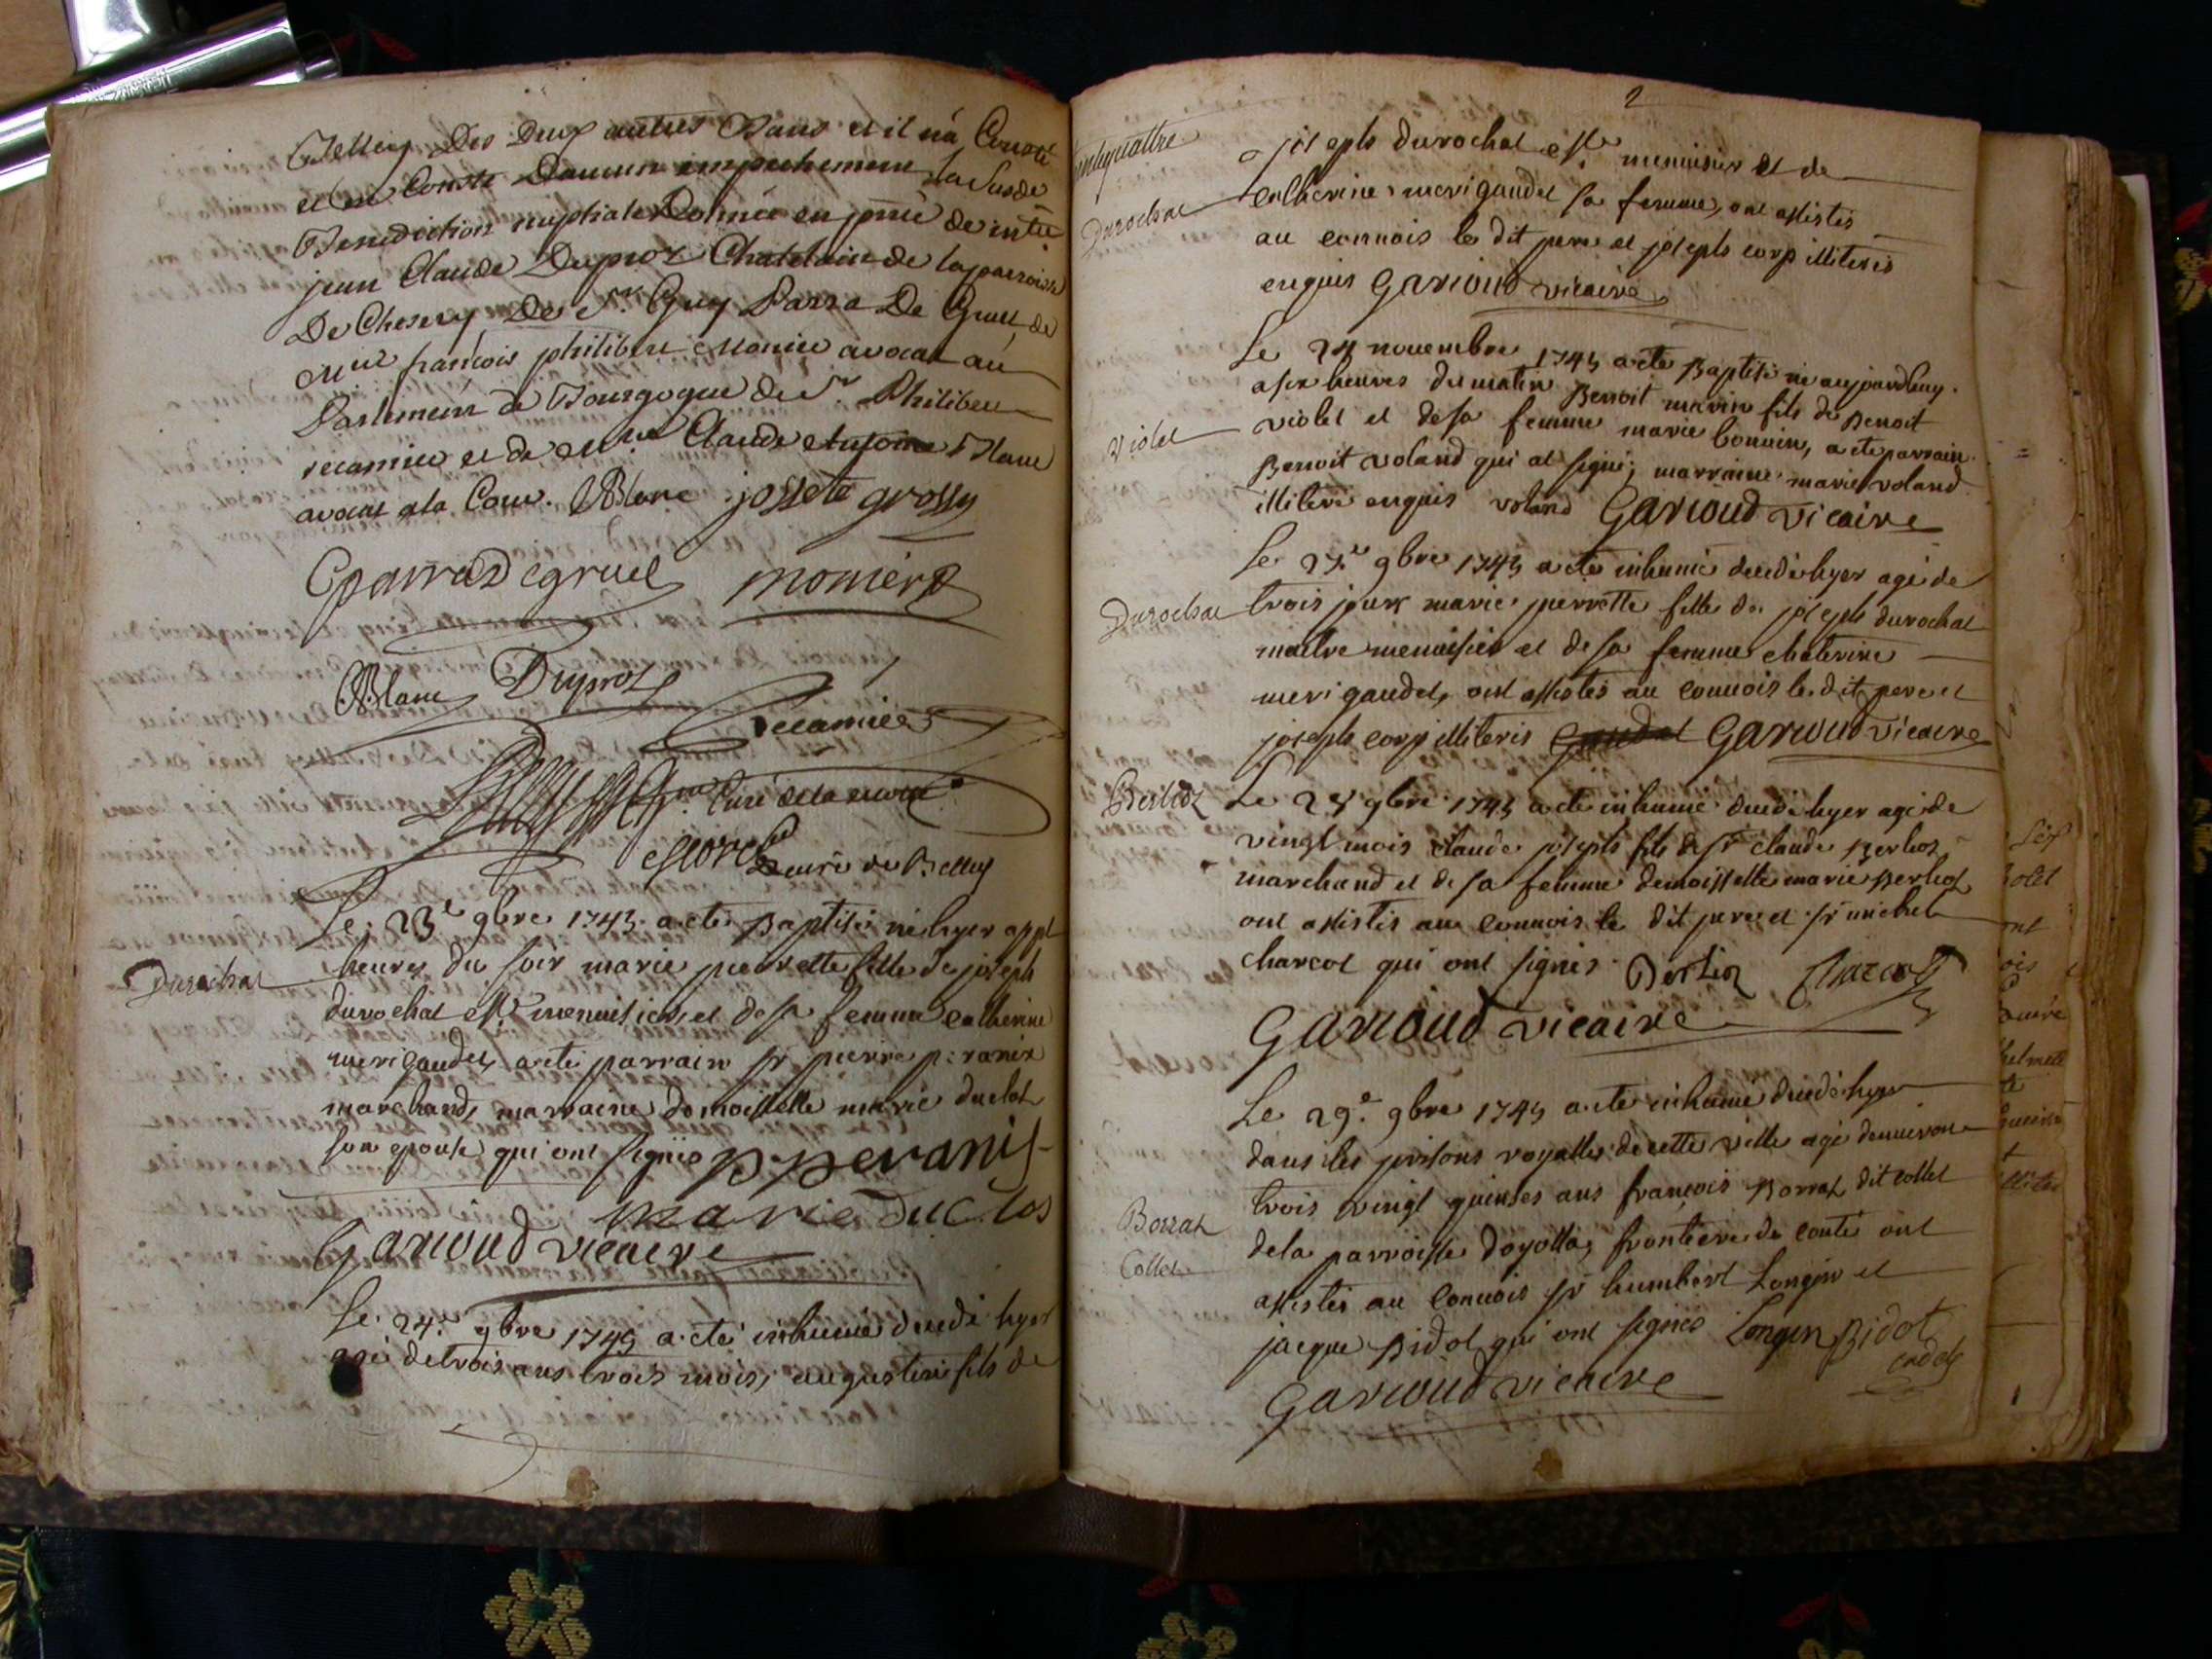 Belley Des Deux autres Bans et il n'a Consté
et ne Conste Daucun empechement la Susde
Benediction nuptiale Donnée en pnce de
jean Claude Duproz Chatelain de la parroisse
De Chesery De Sr. Guy Parra De Gruel, de
Mre françois philibert Monier avocat au
Parlement de Bourgogne de Sr. Philibert
recamier et de Mre Claude Antoine Blanc
avocat a la Cour. Blanc jossete grossy
Gparraz Degruel monier
Blanc Duproz
recamier
Curé
Curé de Belley
Le 23e 9bre 1743 a eté Baptisé né hyer
Durochat
heures du soir marie pierrette fille de joseph
durochat Mre menuisier et de sa femme catherine
merigaudet, a eté parrain sr pierre peranix
marchand, marraine demoisselle marie duclot
son epouse qui ont signés p peranis
marie Duclos
Garioud vicaire
Le 24e 9bre 1743 a eté inhumé decedé hyer
agé de trois ans trois mois, augustin fils de
2
vintquattre
joseph durochat Mre menuisier et de
Durochat
catherine merigaudet sa femme, ont assistés
au convois le dit pere et joseph corp illiterés
enquis Garioud vicaire
Le 24 novembre 1743 a eté Baptisé né aujourdhuy
a six heures du matin Benoit marin fils de Benoit
Violet
violet et de sa femme marie bonnin, a eté parrain
Benoit voland qui at signé, marraine marie voland
illiteré enquis voland Garioud vicaire
Le 9bre 1743 a eté inhumé decedé hyer agé de
Durochat
trois jours marie pierrette fille de joseph durochat
maitre menuisier et de sa femme chaterine
merigaudet, ont assistés au convois le dit pere et
joseph corp illiterés Garioud vicaire
Berlioz
Le 9bre 1743 a eté inhumé decedé hyer agé de
vingt mois claude joseph fils de sr claude Berlioz
marchand et de sa femme demoisselle marie Berlioz
ont assistés au convois le dit pere et sr michel
charcot qui ont signés Berlioz Charcot
Garioud vicaire
Le 29e 9bre 1743 a eté inhumé decedé hyer
dans les prisons royalles de cette ville agé denviron
trois vingt quinses ans françois Borrat dit collet
Borrat
Collet
de la parroisse doyolla, frontiere de conté ont
assistés au convois sr humbert Longin et
jacque Bidot qui ont signés Longin Bidot
Garioud vicaire